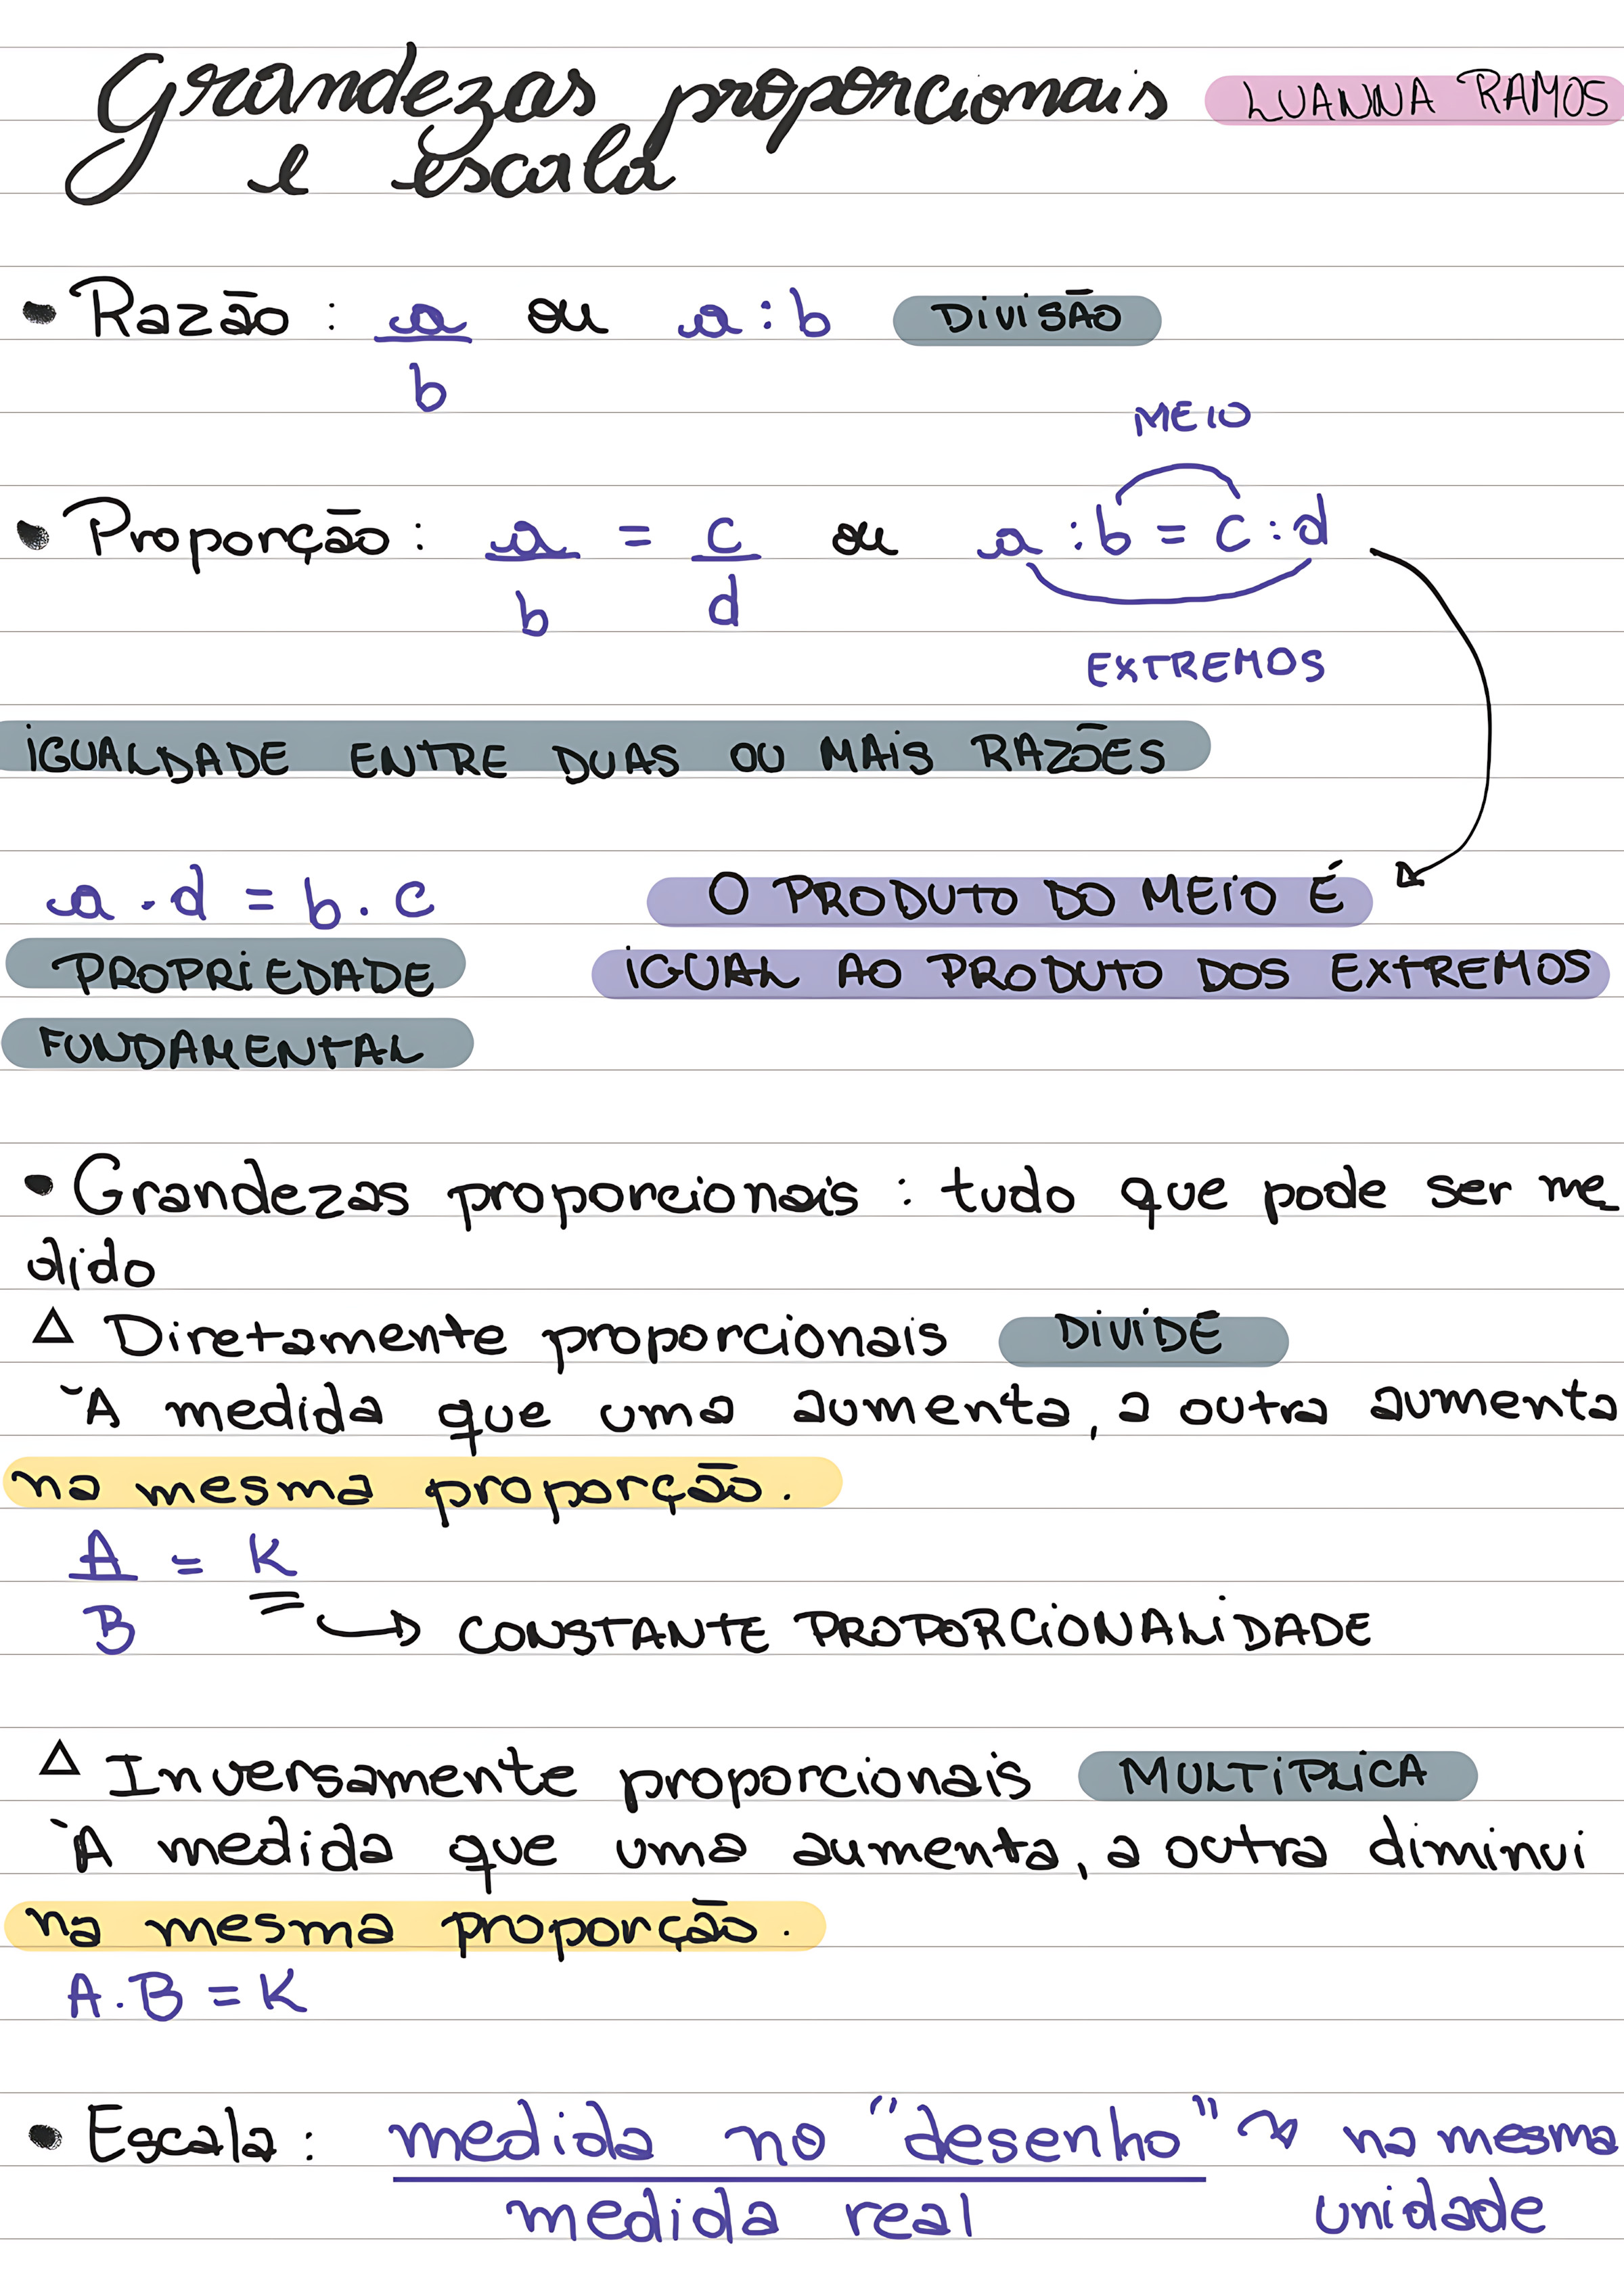 Grandezas proporcionais LUANNA RAMOS
e escala
• Razão : a/b ou a : b DIVISÃO
MEIO
• Proporção : a/b = c/d ou a : b = c : d
EXTREMOS
IGUALDADE ENTRE DUAS OU MAIS RAZÕES
a . d = b . c O PRODUTO DO MEIO É
PROPRIEDADE IGUAL AO PRODUTO DOS EXTREMOS
FUNDAMENTAL
• Grandezas proporcionais : tudo que pode ser me_
dido
△ Diretamente proporcionais DIVIDE
À medida que uma aumenta, a outra aumenta
na mesma proporção.
A/B = K
↳ CONSTANTE PROPORCIONALIDADE
△ Inversamente proporcionais MULTIPLICA
À medida que uma aumenta, a outra diminui
na mesma proporção.
A . B = K
• Escala : medida no "desenho" → na mesma
medida real unidade